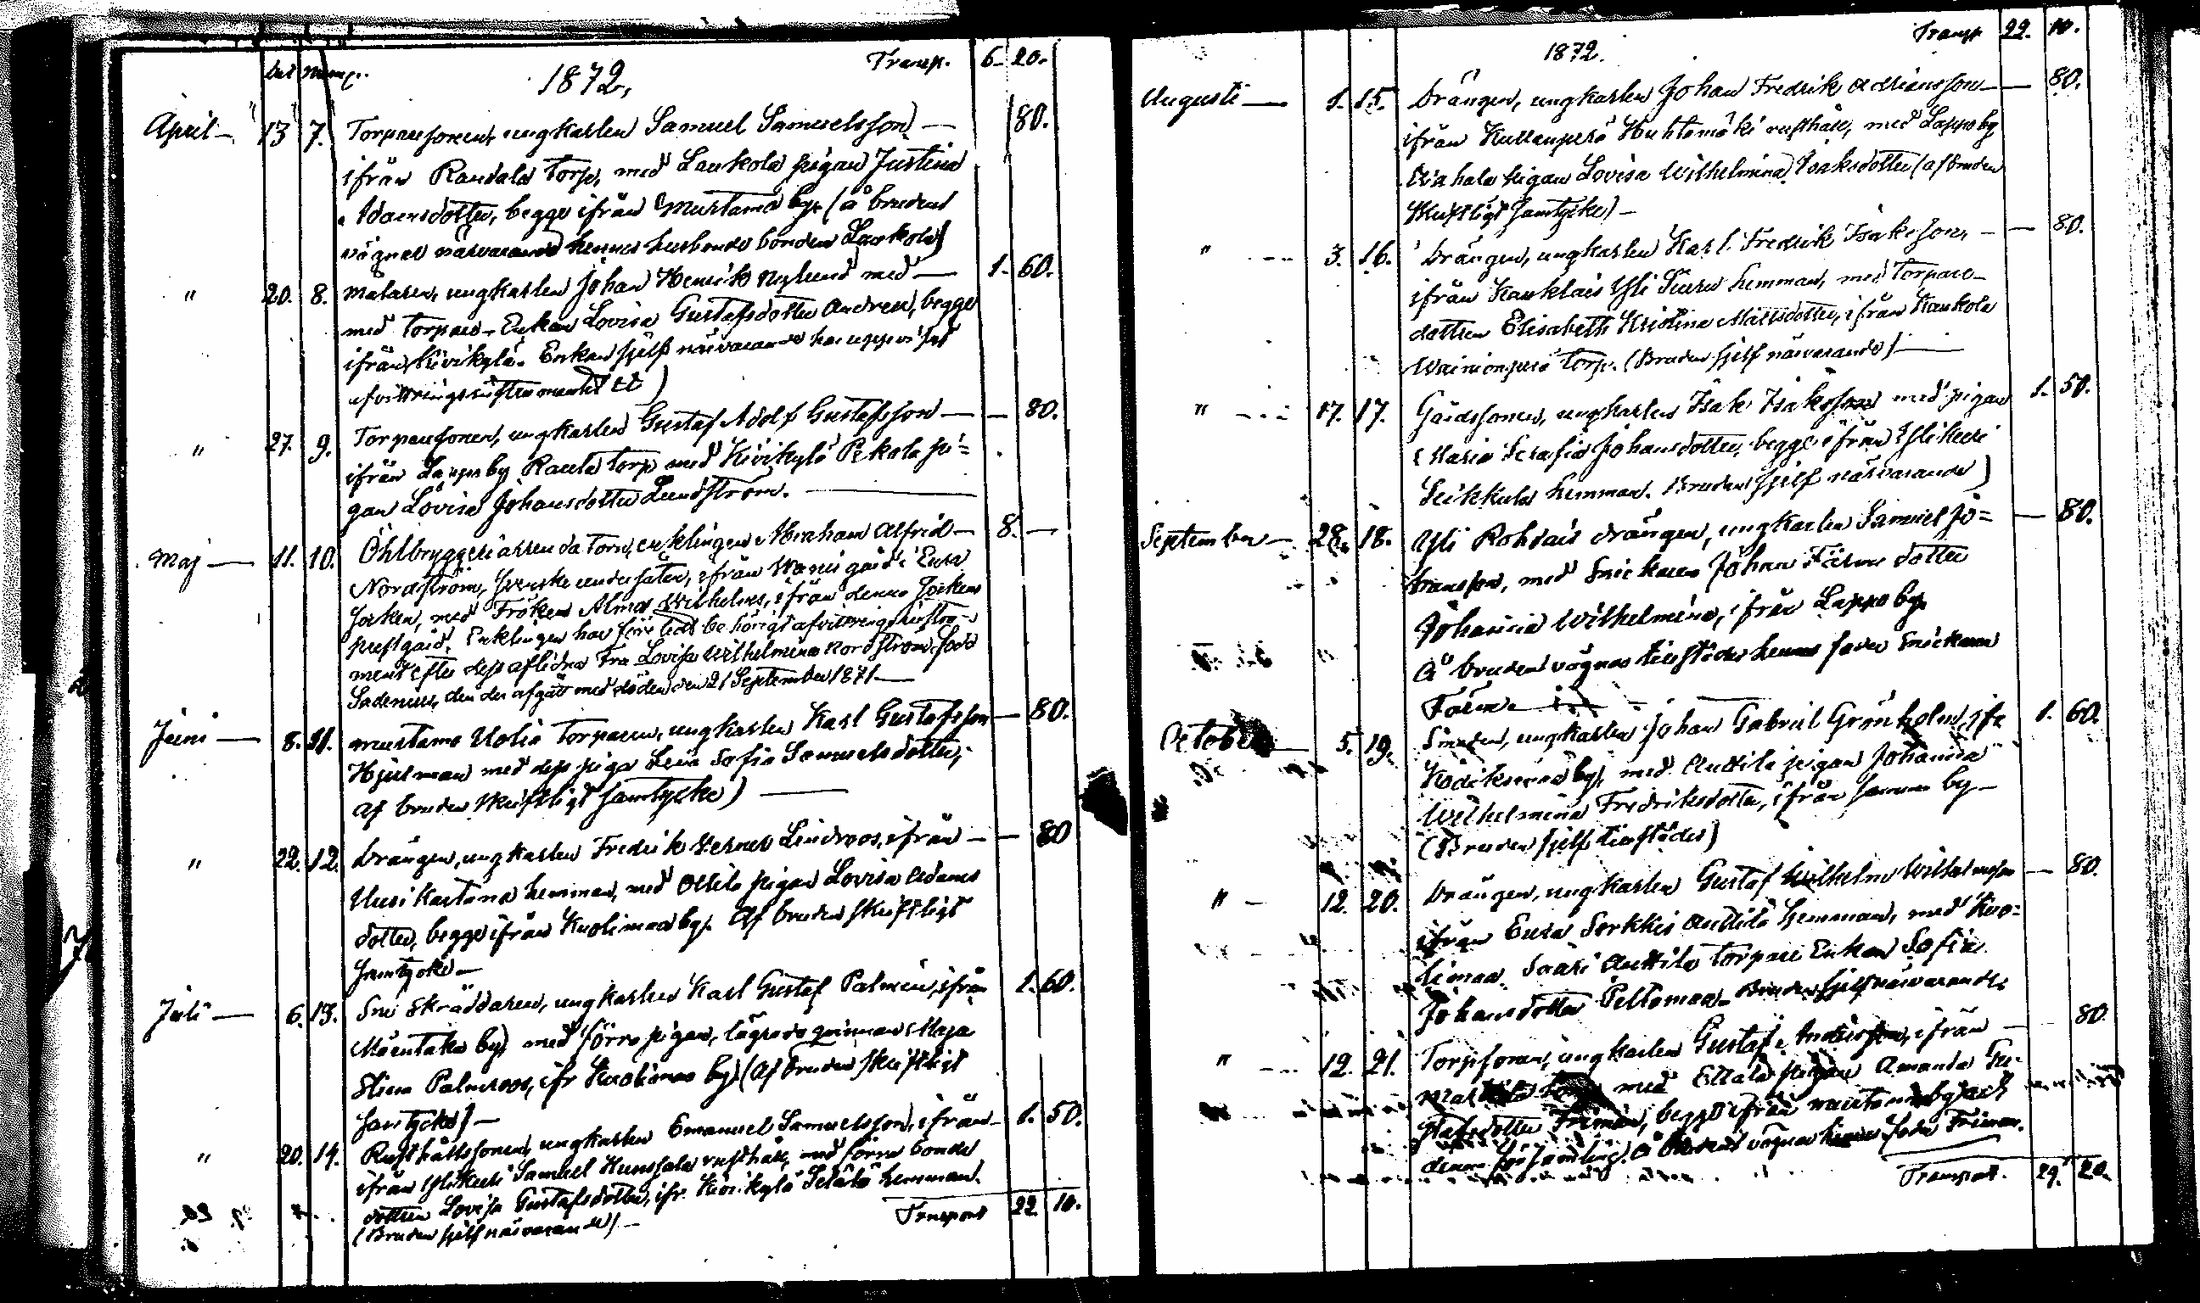 1872. Transp. 6. 20.
April 13 7. Torparesonen, ungkarlen Samuel Samuelsson 80.
ifrån Randala torp, med Laukola pigan Justina
Adamsdotter, begge ifrån Mustamä by (å brudens
vägnar närvarande hennes husbonde bonden Laukola)
" 20. 8. Målaren, ungkarlen Johan Henrik Nylund med 1. 60.
med torpare Enkan Lovisa Gustafsdotter Andren, begge
ifrån Kivikylä. Enkan sjelf närvarande har uppvisat
afvittringsinstrumentet
" 27. 9. Torparesonen, ungkarlen Gustaf Adolf Gustafsson — 80.
ifrån Lappo by Rauta torp med Kivikylä Pekola pi=
gan Lovisa Johansdotter Lundström.
Maj 11. 10. Öhlbryggeri arrendatorn, enklingen Abraham Alfrid 8. —
Nordström, Svenske undersåten, ifrån gård i Eura
Socken, med Fröken Alma Wilhelms, ifrån denna Sockens
prestgård. Enklingen har företedt behörigt afvittringsinstru-
ment efter dess aflidna Fru Lovisa Wilhelmina Nordström född
Sadenius, den der afgått med döden den 21 September 1871
Juni 8. 11. Mustamä Uotia Torparen, ungkarlen Karl Gustafsson 80.
Hjulman med dess piga Lena Sofia Samuelsdotter,
af bruden skriftligt samtycke)
" 22. 12. Drängen, ungkarlen Fredrik Verner Lindroos, ifrån — 80
Uusikartano hemman, med Ottila pigan Lovisa Adams
dotter, begge ifrån Kuolimaa by. Af bruden skriftligt
samtycke
Juli 6. 13. Sne Skräddaren, ungkarlen Karl Gustaf Palmen, ifrån 1. 60.
by med förra pigan, lägrade qvinnan Maja
Stina Palmroos, ifr Kuolimaa by) (af bruden skriftligt
samtycke)
" 20. 14. Rusthållssonen, ungkarlen Emanuel Samuelsson, ifrån 1. 50.
ifrån Ylikeri Samuel Kunssala rusthåll, med förra bonde
dottren Lovisa Gustafsdotter, ifr. Kivikylä Setälä hemman.
(Bruden sjelf närvarande) Transport 22 10.
1872. Transp 22. 10.
Augusti 1. 15. Drängen, ungkarlen Johan Fredrik Adriansson 80.
ifrån Kullanperä Huhtamäki rusthåll, med Lappo by
pigan Lovisa Wilhelmina Isaksdotter (af bruden
skriftligt samtycke)
" 3. 16. Drängen, ungkarlen Karl Fredrik Isaksson, — 80.
ifrån Kauklais Yli hemman, med Torpare-
dottren Elisabeth Kristina Mattsdotter, ifrån Kaukola
Wainionperä torp. (Bruden sjelf närvarande)
" 17. 17. Gårdssonen, ungkarlen Isak Isaksson med pigan 1. 50.
Maria Serafia Johansdotter, begge ifrån Ylikeri
Seikkula hemman. Bruden sjelf närvarande)
September 28. 18. Yli Rohdais drängen, ungkarlen Samuel Jo= — 80.
hansson, med Snickaren Johan Färms dotter
Johanna Wilhelmina, ifrån Lappo by.
å brudens vägnar tillstädes hennes fader Snickaren
Färm
October 5. 19. Smeden, ungkarlen Johan Gabriel Grönholm, ifr 1. 60.
Kodiksema by, med Anttila pigan Johanna
Wilhelmina Fredriksdotter, ifrån samma by
(Bruden sjelf tillstädes)
" 12. 20. Drängen, ungkarlen Gustaf Wilhelm Wilhelmsson — 80.
ifrån Eura Sorkkis Anttila hemman, med Kuo=
limaa Saari Anttila torpare Enkan Sofia
Johansdotter Peltomaa. Bruden sjelf närvarande
" 12. 21. Torpsonen, ungkarlen Gustaf Andersson, ifrån — 80.
med Ettala pigan Amanda Gu-
stafsdotter Friman, begge ifrån Mustamä by och
denna församling. å brudens vägnar hennes fader Friman.
Transport. 29. 20.